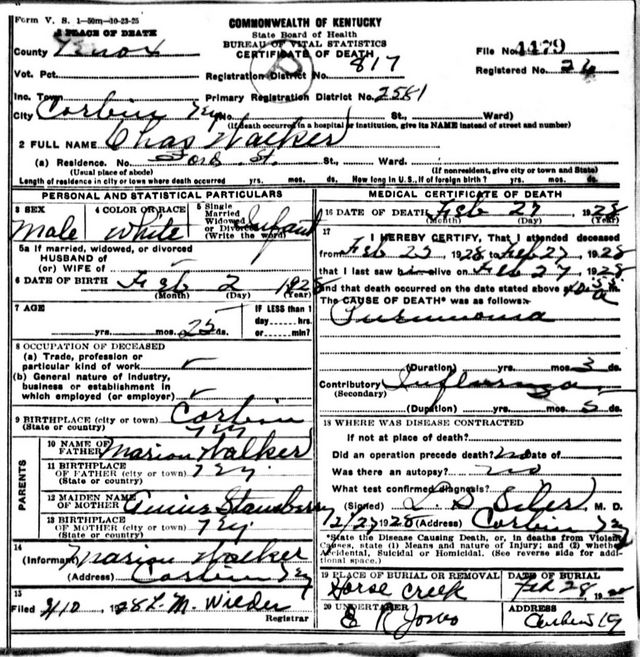 Form V. S. 1—50m—10-23-25
COMMONWEALTH OF KENTUCKY
State Board of Health
BUREAU OF VITAL STATISTICS
CERTIFICATE OF DEATH
1 PLACE OF DEATH
County Knox
File No. 4479
Vot. Pct.
Registration District No. 817
Registered No. 26
Inc. Town
Primary Registration District No. 2581
City Corbin Ky No. St., Ward)
(If death occurred in a hospital or institution, give its NAME instead of street and number)
2 FULL NAME Chas Walker
(a) Residence. No. Ford St. St., Ward.
(Usual place of abode) (If nonresident, give city or town and State)
Length of residence in city or town where death occurred yrs. mos. ds. How long in U. S., if of foreign birth? yrs. mos. ds.
PERSONAL AND STATISTICAL PARTICULARS
3 SEX
Male
4 COLOR OR RACE
White
5 Single
Married
Widowed
or Divorced
(Write the word)
Infant
5a If married, widowed, or divorced
HUSBAND of
(or) WIFE of
6 DATE OF BIRTH Feb 2 1928
(Month) (Day) (Year)
7 AGE
yrs. mos. 25 ds.
IF LESS than 1
day hrs.
or min?
8 OCCUPATION OF DECEASED
(a) Trade, profession or
particular kind of work
(b) General nature of industry,
business or establishment in
which employed (or employer)
9 BIRTHPLACE (city or town) Corbin
(State or country) Ky
PARENTS
10 NAME OF
FATHER Marion Walker
11 BIRTHPLACE
OF FATHER (city or town) Ky
(State or country)
12 MAIDEN NAME
OF MOTHER Stansberry
13 BIRTHPLACE
OF MOTHER (city or town) Ky
(State or country)
14
(Informant) Marion Walker
(Address) Corbin Ky
15
Filed 3/10, 1928 L. M. Wilder
Registrar
MEDICAL CERTIFICATE OF DEATH
16 DATE OF DEATH Feb 27, 1928
(Month) (Day) (Year)
17
I HEREBY CERTIFY, That I attended deceased
from Feb 25 1928 to Feb 27, 1928
that I last saw him alive on Feb 27, 1928
and that death occurred on the date stated above at m.
The CAUSE OF DEATH* was as follows:
Pneumonia
(Duration) yrs. mos. 3 ds.
Contributory Influenza
(Secondary)
(Duration) yrs. mos. 5 ds.
18 WHERE WAS DISEASE CONTRACTED
If not at place of death?
Did an operation precede death? no Date of
Was there an autopsy? no
What test confirmed diagnosis?
(Signed) L. D. Siler M. D.
2/27 1928 (Address) Corbin Ky
*State the Disease Causing Death, or, in deaths from Violent
Causes, state (1) Means and nature of Injury; and (2) whether
Accidental, Suicidal or Homicidal. (See reverse side for addi-
tional space.)
19 PLACE OF BURIAL OR REMOVAL
Horse Creek
DATE OF BURIAL
Feb 28, 19
20 UNDERTAKER
E R Jones
ADDRESS
Corbin Ky